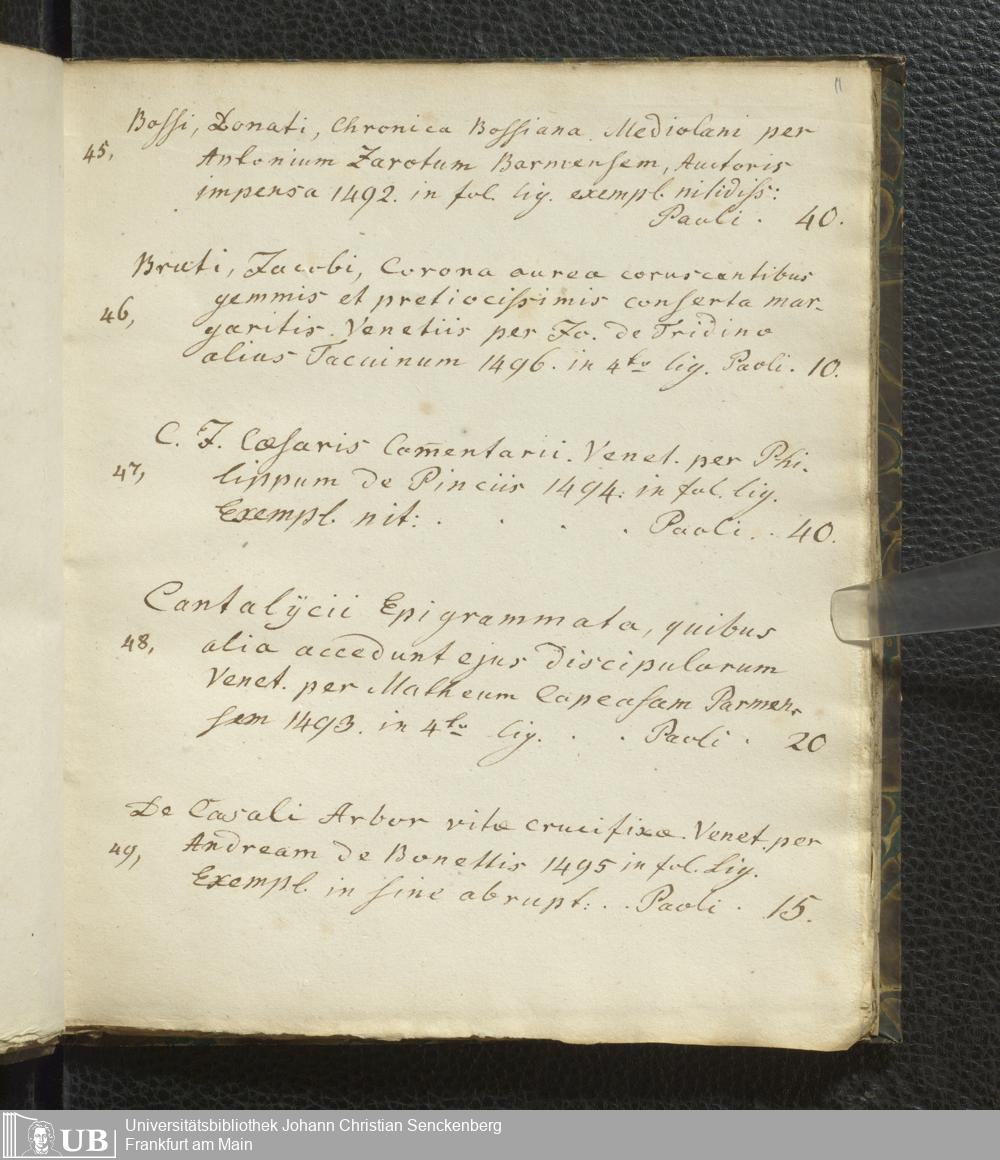 11
Bossi, Donati, Chronica Bossiana. Mediolani per
45, Antonium Zarotum Barmensem, Auctoris
impensa 1492. in fol. lig. exempl. nitidiss:
Paoli . 40.
Bruti, Jacobi, Corona aurea coruscantibus
gemmis et pretiocissimis conserta mar-
46, garitis. Venetiis per Jo. de Tridino
alius Tacuinum 1496. in 4to lig. Paoli. 10.
C. J. Cæsaris Com̄entarii. Venet. per Phi-
47, lippum de Pinciis 1494: in fol. lig.
Exempl. nit: . . . . Paoli. . 40.
Cantalÿcii Epigrammata, quibus
48, alia accedunt ejus discipulorum
Venet. per Matheum Capcasam Parmen-
sem 1493. in 4to lig. . . Paoli . 20
De Casali Arbor vitæ crucifixæ. Venet. per
49, Andream de Bonettis 1495 in fol. Lig.
Exempl. in fine abrupt: . . Paoli . 15.
UB
Universitätsbibliothek Johann Christian Senckenberg
Frankfurt am Main